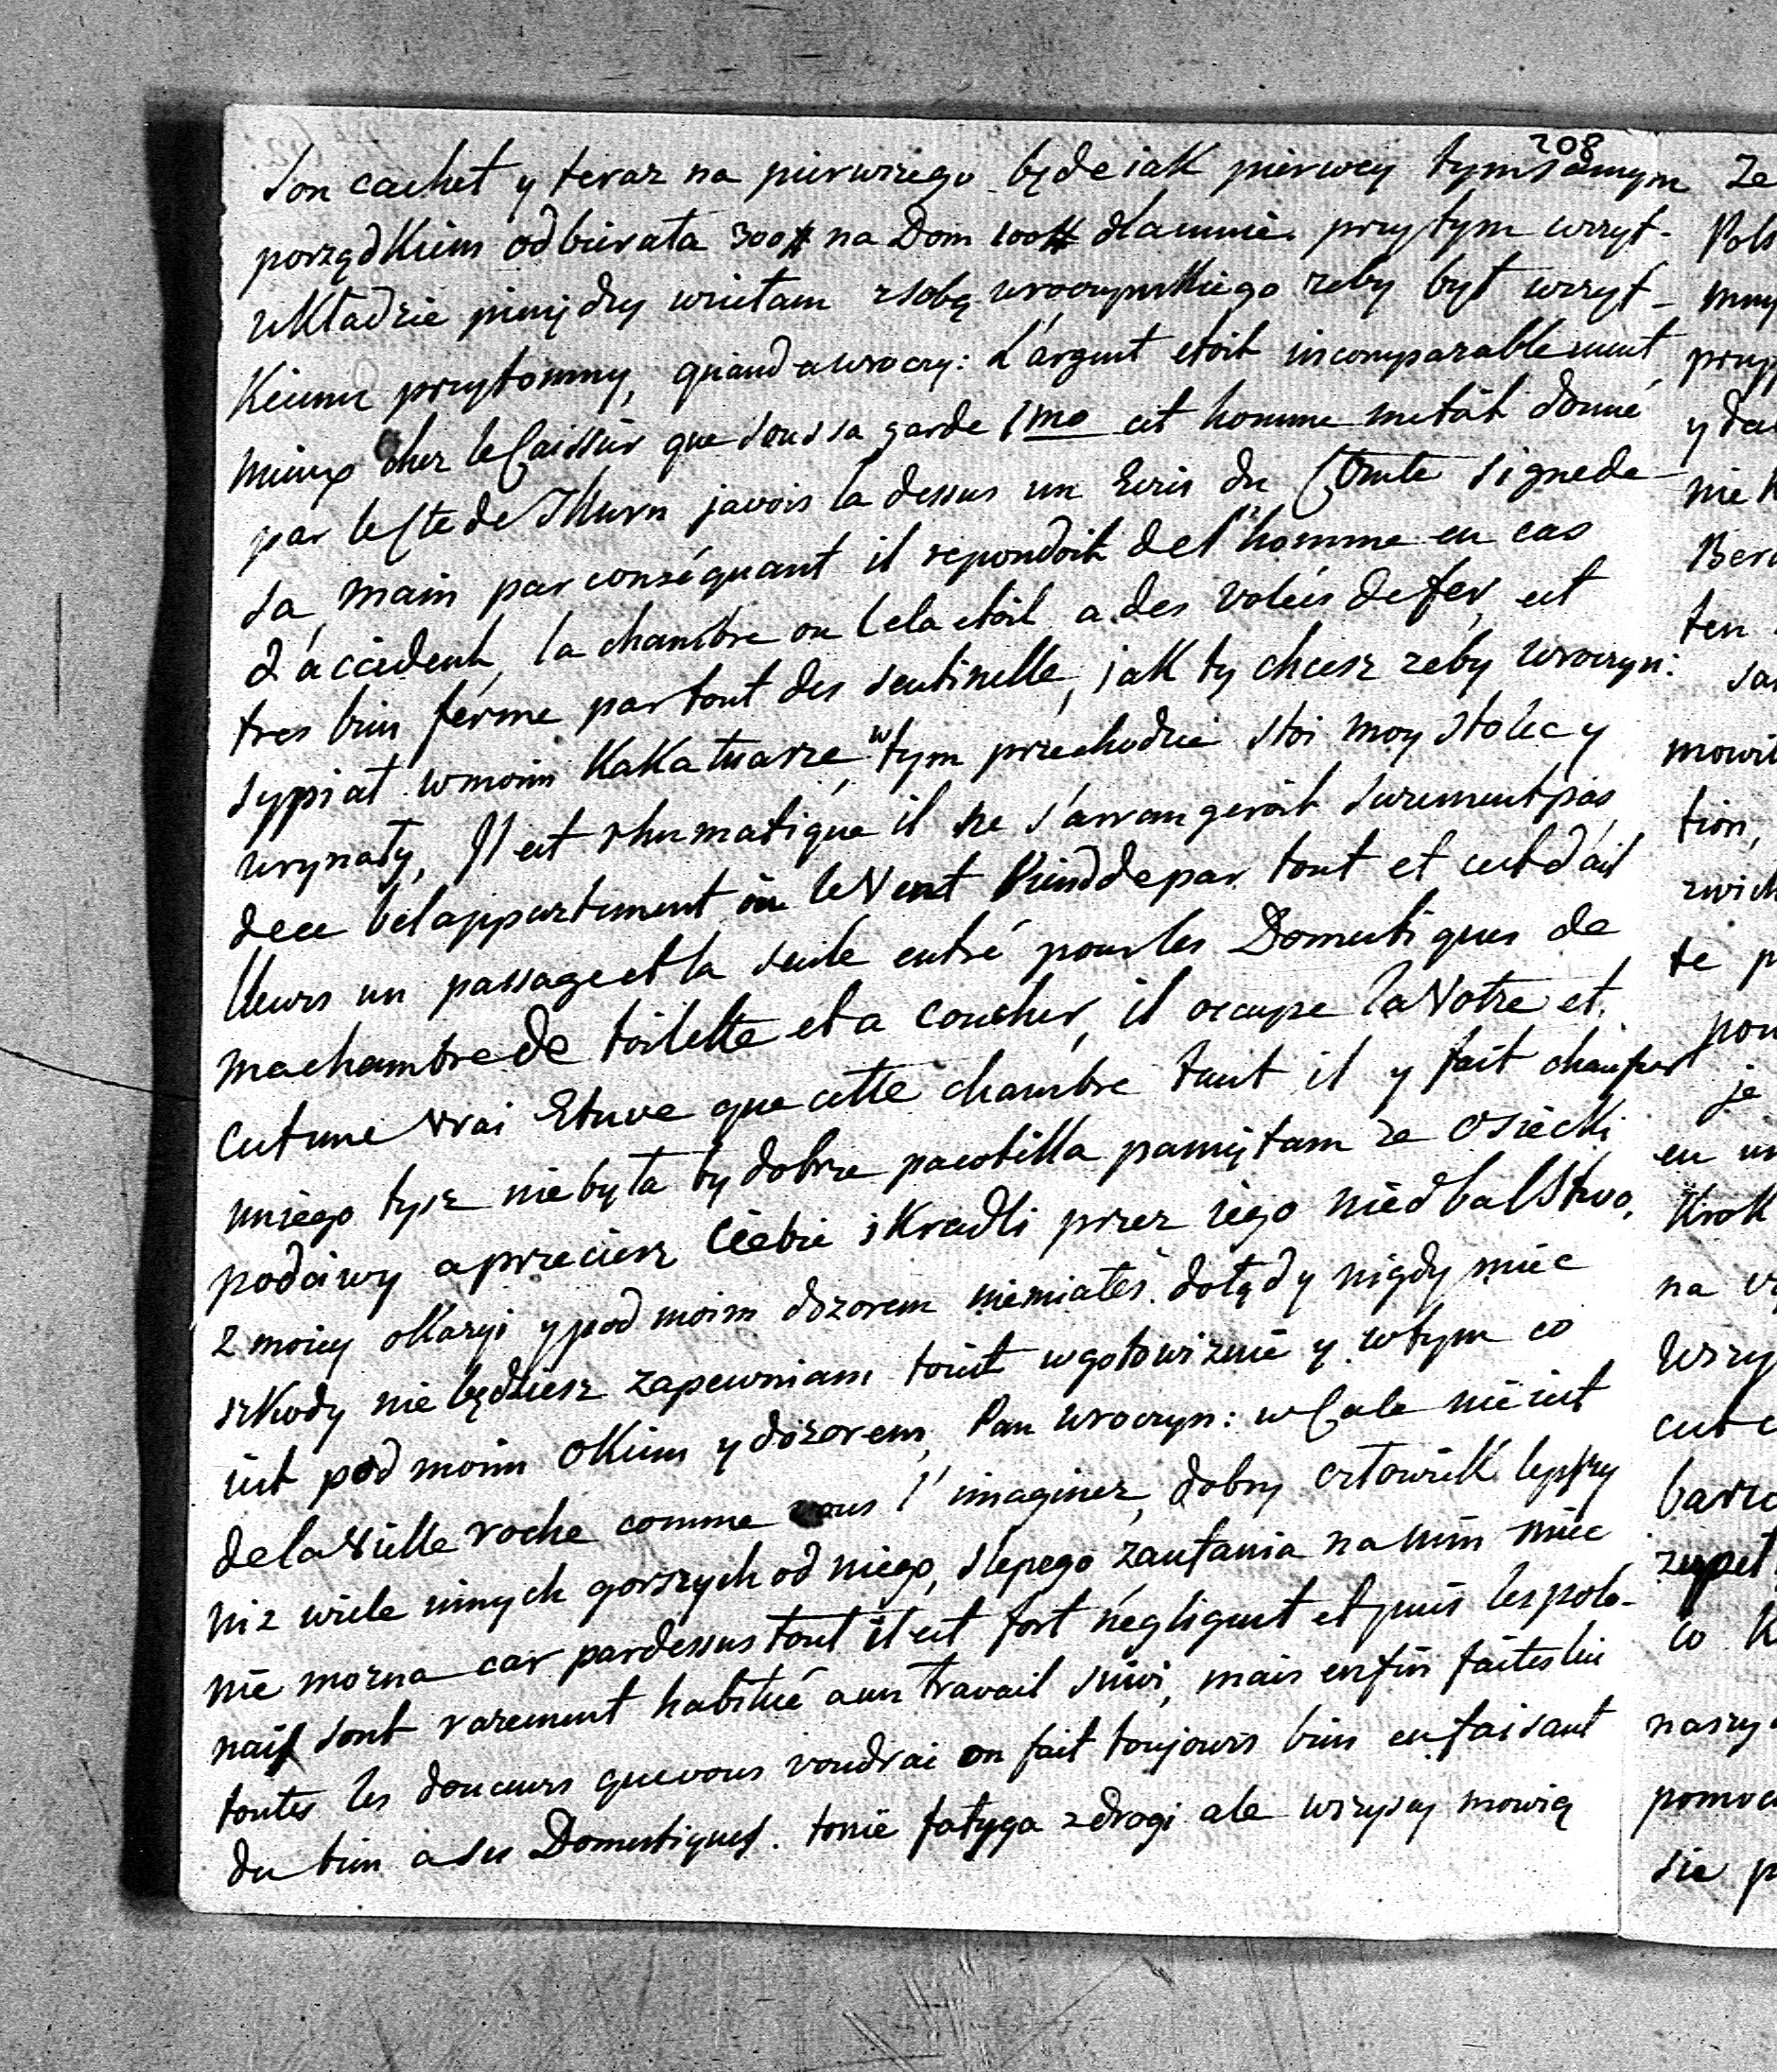 208
son cachet y teraz na pierwszego będe iak pierwey tym samym
porządkiem odbierała 300# na Dom 100# dla mnie. przy tym wszyt-
układzie pieniędzy wziełam z sobą wroczynskiego zeby był wszyt-
kiemu przytomny, quand a wroczy: L'argent etoit incomparablement
mieux chez le Caissier que sous sa garde 1mo cet homme metát donné
par le Cte de Thurn javois la dessus un Ecris du Comte signe de
sa main par conséquant il repondoit de l'homme en cas
d'accident, la chambre ou Cela etoit a des voleis de fer, est
tres bien fermé par tout des sentinelle, jak ty chcesz zeby wroczyn:
sypiał w moim Kakatuarze, w tym przechodzie stoi moy stolec y
urynały, Il est rhumatique il ne s'arrangeroit surement pas
de ce bel appartement ou le Vent Vient de par tout et cest d'ail
lleurs un passage et la seule entré pour les Domestiques de
ma chambre de toilette et a coucher, il occupe la Votre et
cest une vrai Etuve que cette chambre tant il y fait chaufer
u niego tysz nie była by dobrze pacotilla pamiętam ze Osiecki
poćciwy a przeciesz Ciebie skradli przez iego niedbalstwo,
z moiey okazyi y pod moim dozorem niemiałes dotądy nigdy miec
szkody nie będziesz zapewniam toiest w gotowiznie y w tym co
iest pod moim okiem y dozorem, Pan Wroczyn: w Cale nie iest
de la vielle roche comme vous l'imaginez, dobry człowiek lepszy
niz wiele innych gorszych od niego, slepego zaufania na nim miec
nie mozna car pardessus tout il est fort négligent et puis les polo-
nais sont rarement habitué a un travail suivi, mais enfin faites lui
toutes les douceurs que vous voudrai on fait toujours bien en faisant
du bien a ses Domestiques. tonie fatyga z drogi ale wszyscy mowią